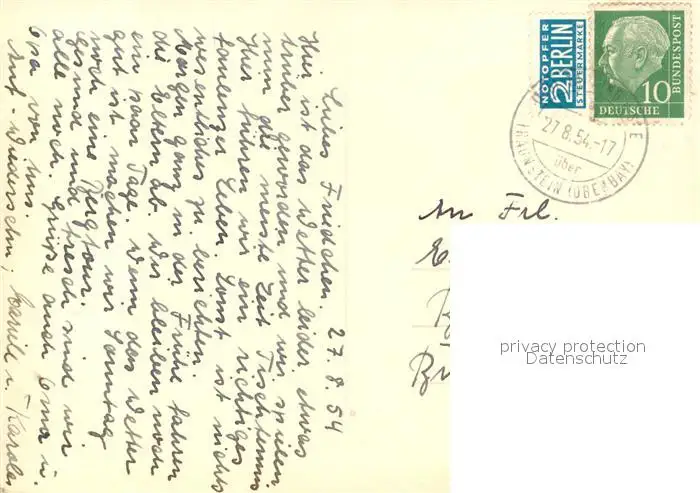 27.8.54
Liebes Friedchen.
Hier ist das Wetter leider etwas
trüber geworden und wir spielen
nun die meiste Zeit Tischtennis
Hier führen wir ein richtiges
Leben. Sonst ist nichts
wesentliches zu berichten.
Morgen ganz in der Frühe fahren
die Eltern ab. Wir bleiben noch
ein paar Tage. Wenn das Wetter
gut ist machen wir Sonntag
noch eine Bergtour.
Gesund und frisch sind wir
alle noch. Grüße auch Oma u.
Opa von uns.
Auf Wiedersehn, u.
NOTOPFER
2 BERLIN
STEUERMARKE
10
DEUTSCHE
BUNDESPOST
27.8.54.-17
über
TRAUNSTEIN (OBERBAY)
An Frl.
privacy protection
Datenschutz